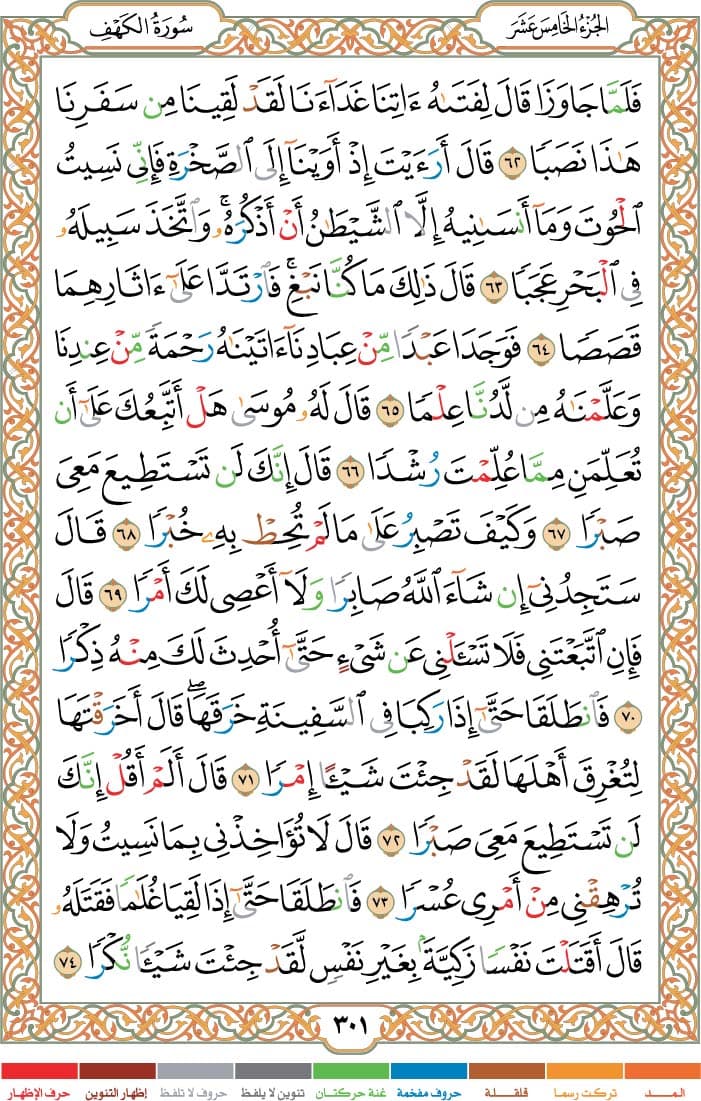 الجزء الخامس عشر
سورة الكهف
فَلَمَّا جَاوَزَا قَالَ لِفَتَىٰهُ ءَاتِنَا غَدَآءَنَا لَقَدْ لَقِينَا مِن سَفَرِنَا
هَٰذَا نَصَبًا ٦٢ قَالَ أَرَءَيْتَ إِذْ أَوَيْنَآ إِلَى ٱلصَّخْرَةِ فَإِنِّي نَسِيتُ
ٱلْحُوتَ وَمَآ أَنسَىٰنِيهُ إِلَّا ٱلشَّيْطَٰنُ أَنْ أَذْكُرَهُۥۚ وَٱتَّخَذَ سَبِيلَهُۥ
فِي ٱلْبَحْرِ عَجَبًا ٦٣ قَالَ ذَٰلِكَ مَا كُنَّا نَبْغِۚ فَٱرْتَدَّا عَلَىٰٓ ءَاثَارِهِمَا
قَصَصًا ٦٤ فَوَجَدَا عَبْدًا مِّنْ عِبَادِنَآ ءَاتَيْنَٰهُ رَحْمَةً مِّنْ عِندِنَا
وَعَلَّمْنَٰهُ مِن لَّدُنَّا عِلْمًا ٦٥ قَالَ لَهُۥ مُوسَىٰ هَلْ أَتَّبِعُكَ عَلَىٰٓ أَن
تُعَلِّمَنِ مِمَّا عُلِّمْتَ رُشْدًا ٦٦ قَالَ إِنَّكَ لَن تَسْتَطِيعَ مَعِيَ
صَبْرًا ٦٧ وَكَيْفَ تَصْبِرُ عَلَىٰ مَا لَمْ تُحِطْ بِهِۦ خُبْرًا ٦٨ قَالَ
سَتَجِدُنِيٓ إِن شَآءَ ٱللَّهُ صَابِرًا وَلَآ أَعْصِي لَكَ أَمْرًا ٦٩ قَالَ
فَإِنِ ٱتَّبَعْتَنِي فَلَا تَسْـَٔلْنِي عَن شَيْءٍ حَتَّىٰٓ أُحْدِثَ لَكَ مِنْهُ ذِكْرًا
٧٠ فَٱنطَلَقَا حَتَّىٰٓ إِذَا رَكِبَا فِي ٱلسَّفِينَةِ خَرَقَهَاۖ قَالَ أَخَرَقْتَهَا
لِتُغْرِقَ أَهْلَهَا لَقَدْ جِئْتَ شَيْـًٔا إِمْرًا ٧١ قَالَ أَلَمْ أَقُلْ إِنَّكَ
لَن تَسْتَطِيعَ مَعِيَ صَبْرًا ٧٢ قَالَ لَا تُؤَاخِذْنِي بِمَا نَسِيتُ وَلَا
تُرْهِقْنِي مِنْ أَمْرِي عُسْرًا ٧٣ فَٱنطَلَقَا حَتَّىٰٓ إِذَا لَقِيَا غُلَٰمًا فَقَتَلَهُۥ
قَالَ أَقَتَلْتَ نَفْسًا زَكِيَّةًۢ بِغَيْرِ نَفْسٍ لَّقَدْ جِئْتَ شَيْـًٔا نُّكْرًا ٧٤
٣٠١
المـــد تركت رسما قلقـــلة حروف مفخمة غنة حركتان تنوين لا يلفظ حروف لا تلفظ إظهار التنوين حرف الإظهار